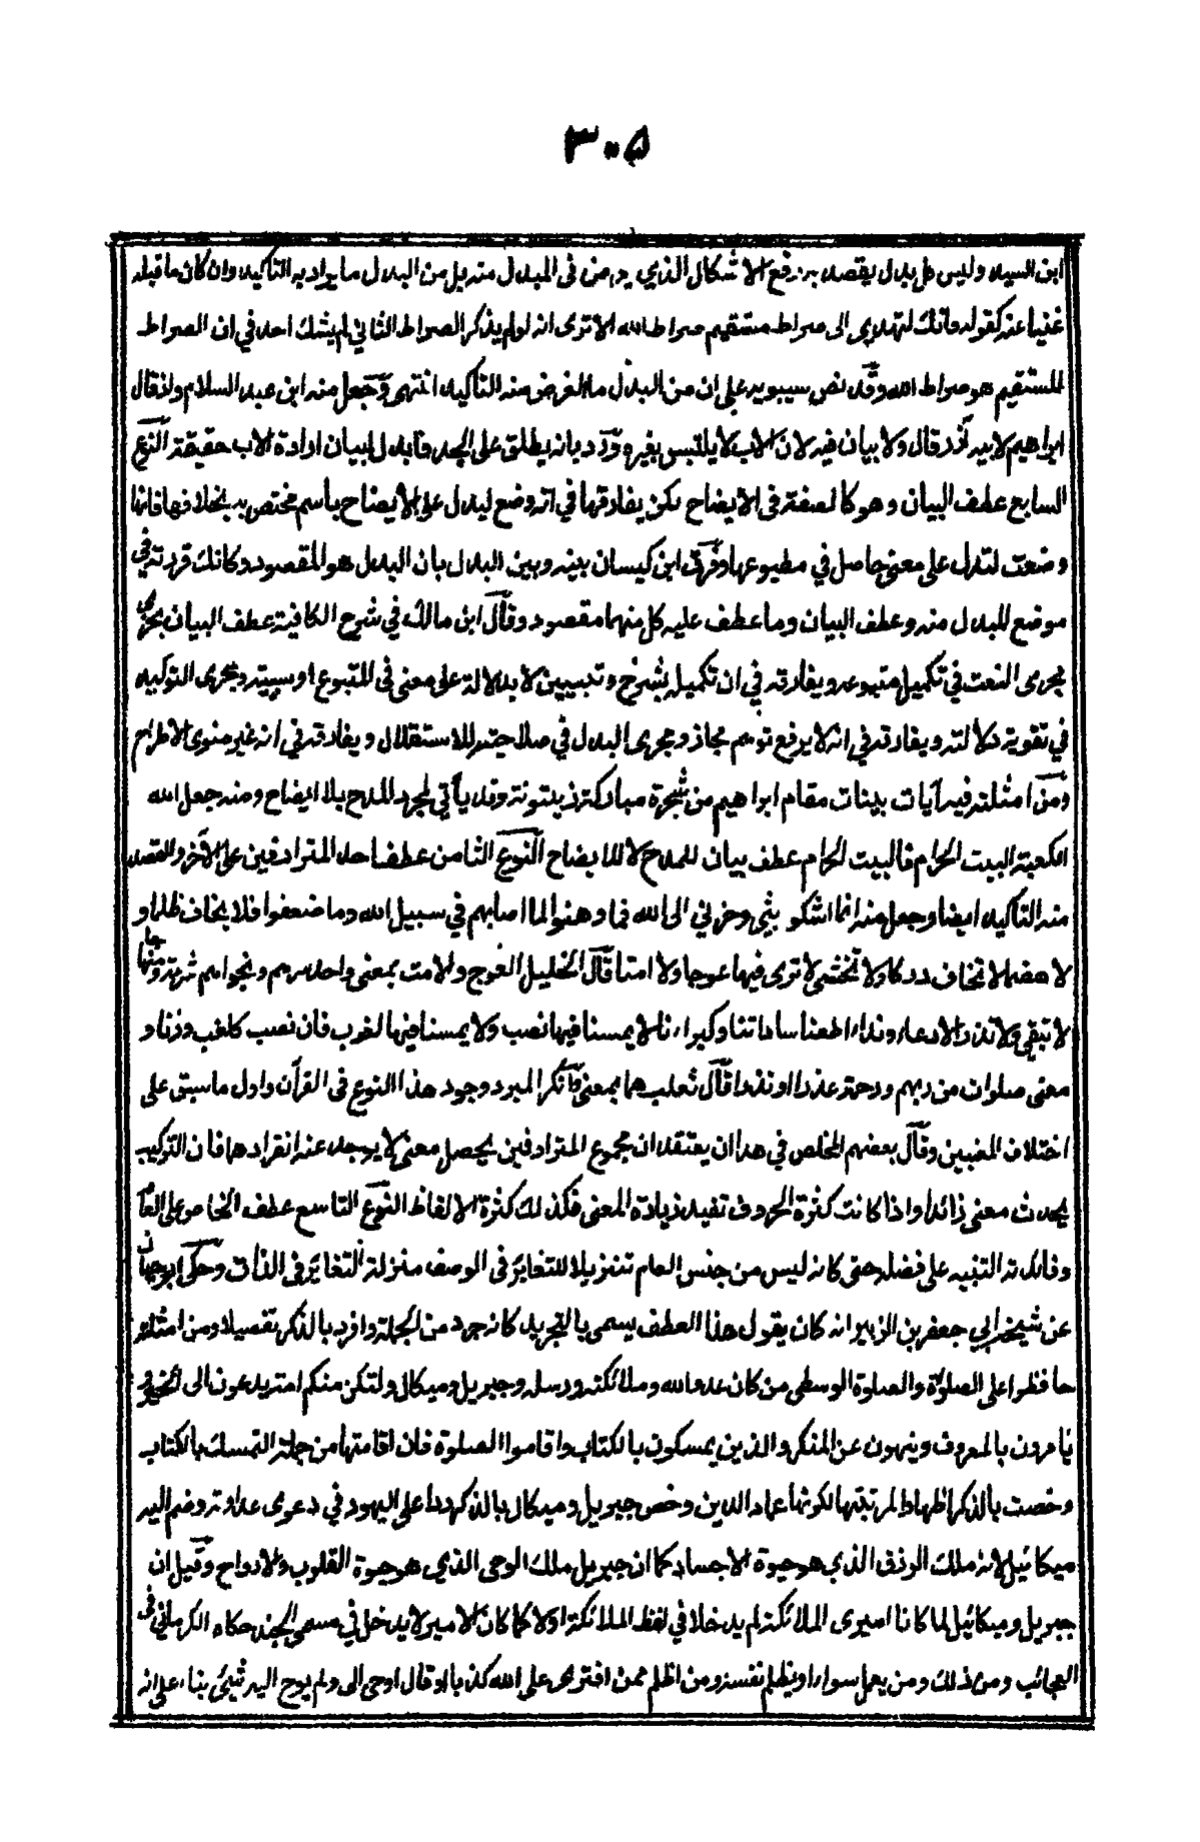 ٣٠٥
ابن السيد وليس كل بدل يقصد به رفع الاشكال الذي يعرض في المبدل منه بل من البدل ما يراد به التاكيد وان كان ما قبله
غنيا عنه كقوله وانك لتهدي الى صراط مستقيم صراط الله الا ترى انه لو لم يذكر الصراط الثاني لم يشك احد في ان الصراط
المستقيم هو صراط الله وقد نص سيبويه على ان من البدل ما الغرض منه التاكيد انتهى وجعل منه ابن عبد السلام واذ قال
ابراهيم لابيه آزر قال ولا بيان فيه لان الاب لا يلتبس بغيره ورد بانه يطلق على الجد فابدل لبيان ارادة الاب حقيقة النوع
السابع عطف البيان وهو كالصفة في الايضاح لكن يفارقها في انه وضع ليدل على الايضاح باسم مختص به بخلافها فانها
وضعت لتدل على معنى حاصل في مطبوعها وفرق ابن كيسان بينه وبين البدل بان البدل هو المقصود وكانك قررته في
موضع المبدل منه وعطف البيان وما عطف عليه كل منهما مقصود وقال ابن مالك في شرح الكافية عطف البيان يجري
مجرى النعت في تكميل متبوعه ويفارقه في ان تكميله بشرح وتبيين لا بدلالة على معنى في المتبوع او سببيته ومجرى التوكيد
في تقوية دلالته ويفارقه في انه لا يرفع توهم مجاز ومجرى البدل في صلاحيته للاستقلال ويفارقه في انه غير منوى الاطراح
ومن امثلته فيه آيات بينات مقام ابراهيم من شجرة مباركة زيتونة وقد ياتي لمجرد المدح بلا ايضاح ومنه جعل الله
الكعبة البيت الحرام فالبيت الحرام عطف بيان للمدح لا للايضاح النوع الثامن عطف احد المترادفين على الآخر والقصد
منه التاكيد ايضا وجعل منه انما اشكو بثي وحزني الى الله فما وهنوا لما اصابهم في سبيل الله وما ضعفوا فلا يخاف ظلما و
لا هضما لا تخاف دركا ولا تخشى لا ترى فيها عوجا ولا امتا قال الخليل العوج والامت بمعنى واحد سرهم ونجواهم شرعة ومنهاجا
لا تبقي ولا تذر الا دعاء ونداء اطعنا ساداتنا وكبراءنا لا يمسنا فيها نصب ولا يمسنا فيها لغوب فان نصب كلغب وزنا و
معنى صلوات من ربهم ورحمة عذرا او نذرا قال ثعلب هما بمعنى وانكر المبرد وجود هذا النوع في القرآن واول ما سبق على
اختلاف المعنيين وقال بعضهم المخلص في هذا ان يعتقد ان مجموع المترادفين يحصل معنى لا يوجد عند انفرادهما فان التركيب
يحدث معنى زائدا واذا كانت كثرة الحروف تفيد زيادة المعنى فكذلك كثرة الالفاظ النوع التاسع عطف الخاص على العام
وفائدته التنبيه على فضله حتى كانه ليس من جنس العام تنزيلا للتغاير في الوصف منزلة التغاير في الذات وحكى ابو حيان
عن شيخه ابي جعفر بن الزبير انه كان يقول هذا العطف يسمى بالتجريد كانه جرد من الجملة وافرد بالذكر تفصيلا ومن امثلته
حافظوا على الصلوة والصلوة الوسطى من كان عدوا لله وملائكته ورسله وجبريل وميكال ولتكن منكم امة يدعون الى الخير و
يامرون بالمعروف وينهون عن المنكر والذين يمسكون بالكتاب واقاموا الصلوة فان اقامتها من جملة التمسك بالكتاب
وخصت بالذكر اظهارا لمرتبتها لكونها عماد الدين وخص جبريل وميكال بالذكر ردا على اليهود في دعوى عداوته وضم اليه
ميكائيل لانه ملك الرزق الذي هو حيوة الاجساد كما ان جبريل ملك الوحي الذي هو حيوة القلوب والارواح وقيل ان
جبريل وميكائيل لما كانا اميري الملائكة لم يدخلا في لفظ الملائكة اولا كما كان الامير لا يدخل في مسمى الجند حكاه الكرماني في
العجائب ومن ذلك ومن يعمل سوءا او يظلم نفسه ومن اظلم ممن افترى على الله كذبا او قال اوحي الى ولم يوح اليه شيئ بناء على انه